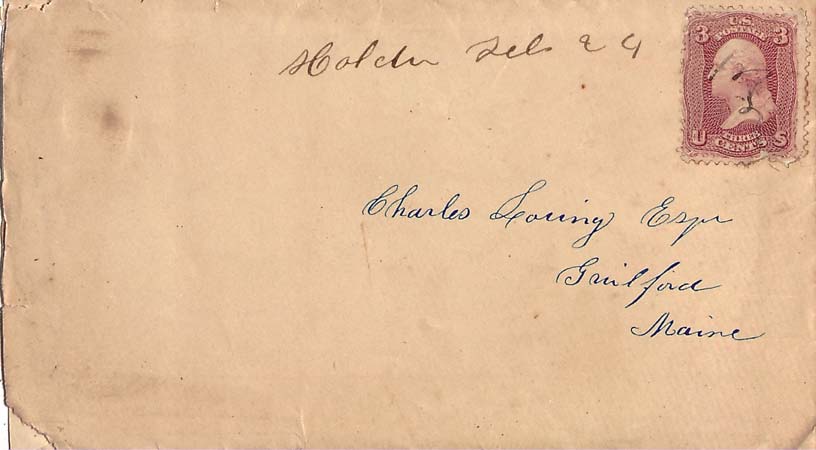 Holden Feb 24
3 U.S. POSTAGE 3
U THREE CENTS S
Charles Loring Esqr
Guilford
Maine